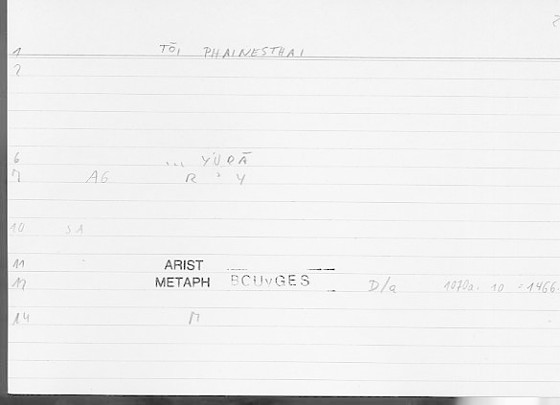 1 TŌI PHAINESTHAI
2
6 ... YURĀ
7 AG R ʾ Y
10 SA
11 ARIST
METAPH BCUvGES D/a 1070a. 10 -1466-
14 M